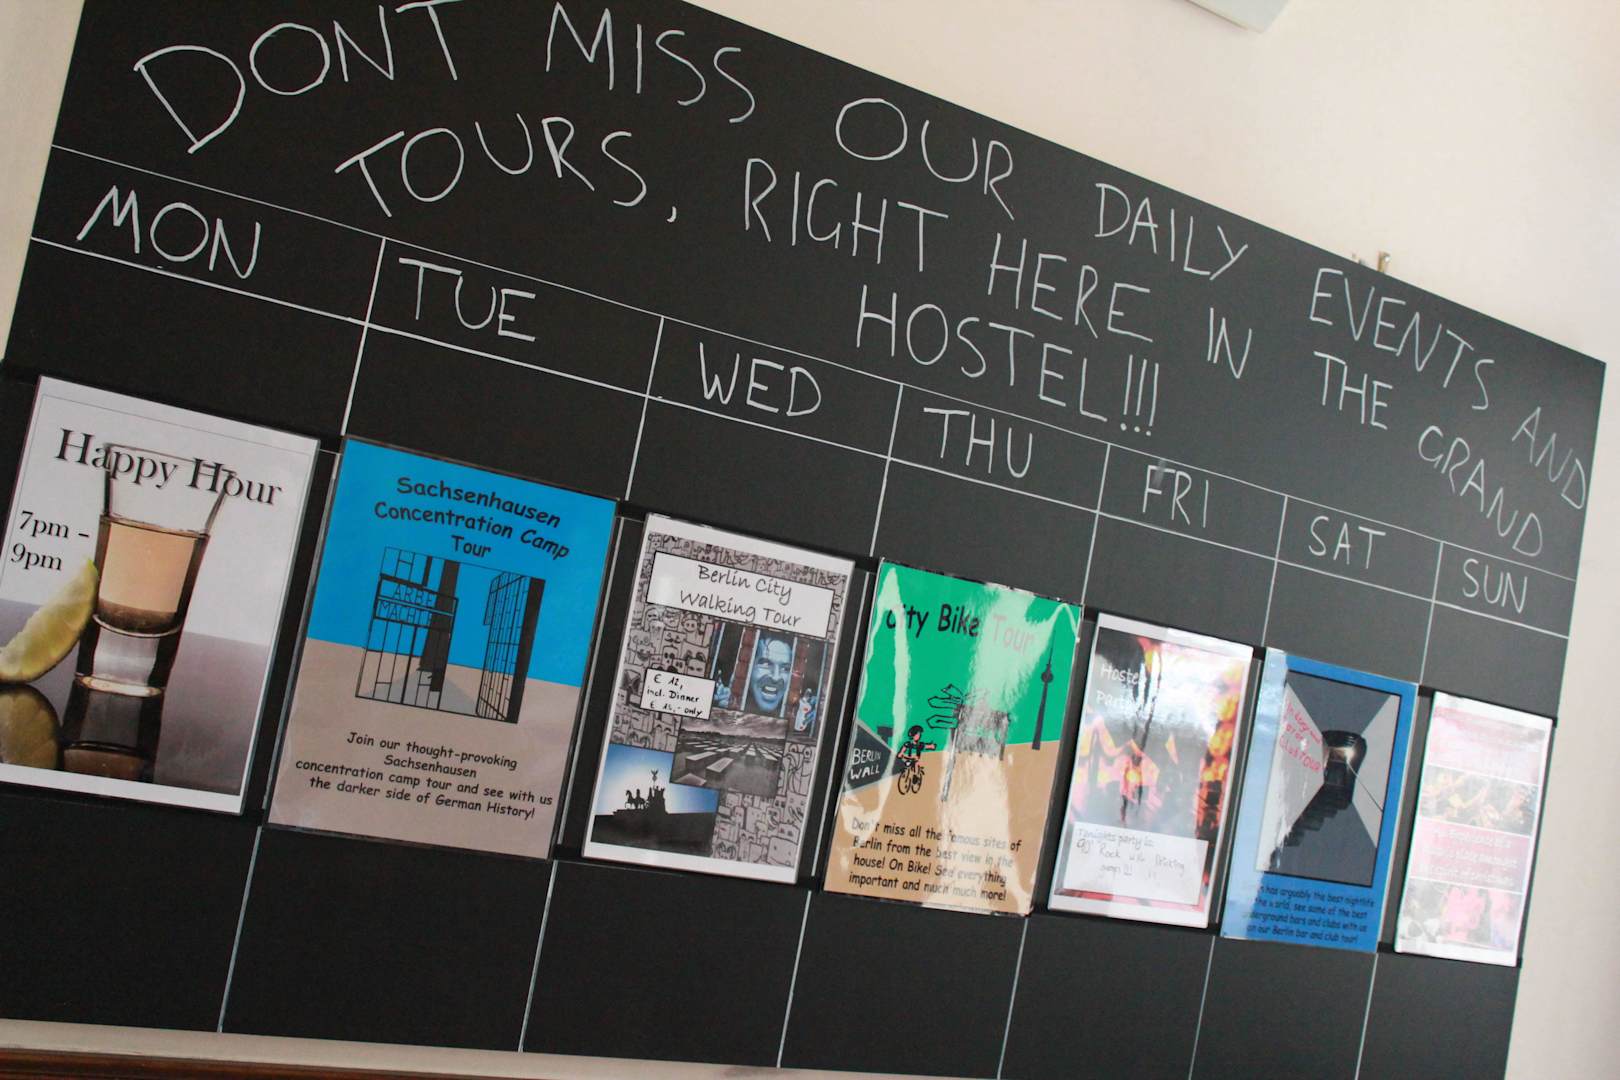 DONT MISS OUR DAILY EVENTS AND
TOURS, RIGHT HERE IN THE GRAND
HOSTEL!!!
MON
TUE
WED
THU
FRI
SAT
SUN
Happy Hour
7pm -
9pm
Sachsenhausen
Concentration Camp
Tour
ARBE
MACHT
Join our thought-provoking
Sachsenhausen
concentration camp tour and see with us
the darker side of German History!
Berlin City
Walking Tour
€ 12,
incl. Dinner
only
City Bike Tour
BERLIN
WALL
Don't miss all the famous sites of
Berlin from the best view in the
house! On Bike! See everything
important and much much more!
Party
Tonights party is:
Rock Drinking
has arguably the best nightlife
the world, see some of the best
underground bars and clubs with us
on our Berlin bar and club tour!